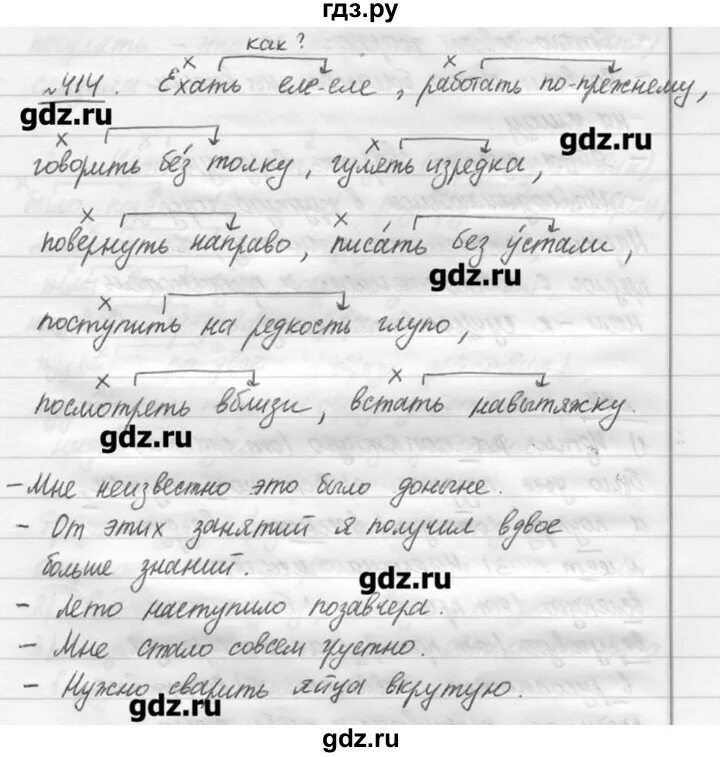 гдз.ру
как?
№414. Ехать еле-еле, работать по-прежнему,
gdz.ru
gdz.ru
говорить без толку, гулять изредка,
повернуть направо, писать без устали,
gdz.ru
поступить на редкость глупо,
посмотреть вблизи, встать навытяжку.
gdz.ru
- Мне неизвестно это было доныне.
- От этих занятий я получил вдвое
больше знаний.
gdz.ru
- Лето наступило позавчера.
- Мне стало совсем грустно.
- Нужно сварить яйца вкрутую.
gdz.ru
gdz.ru